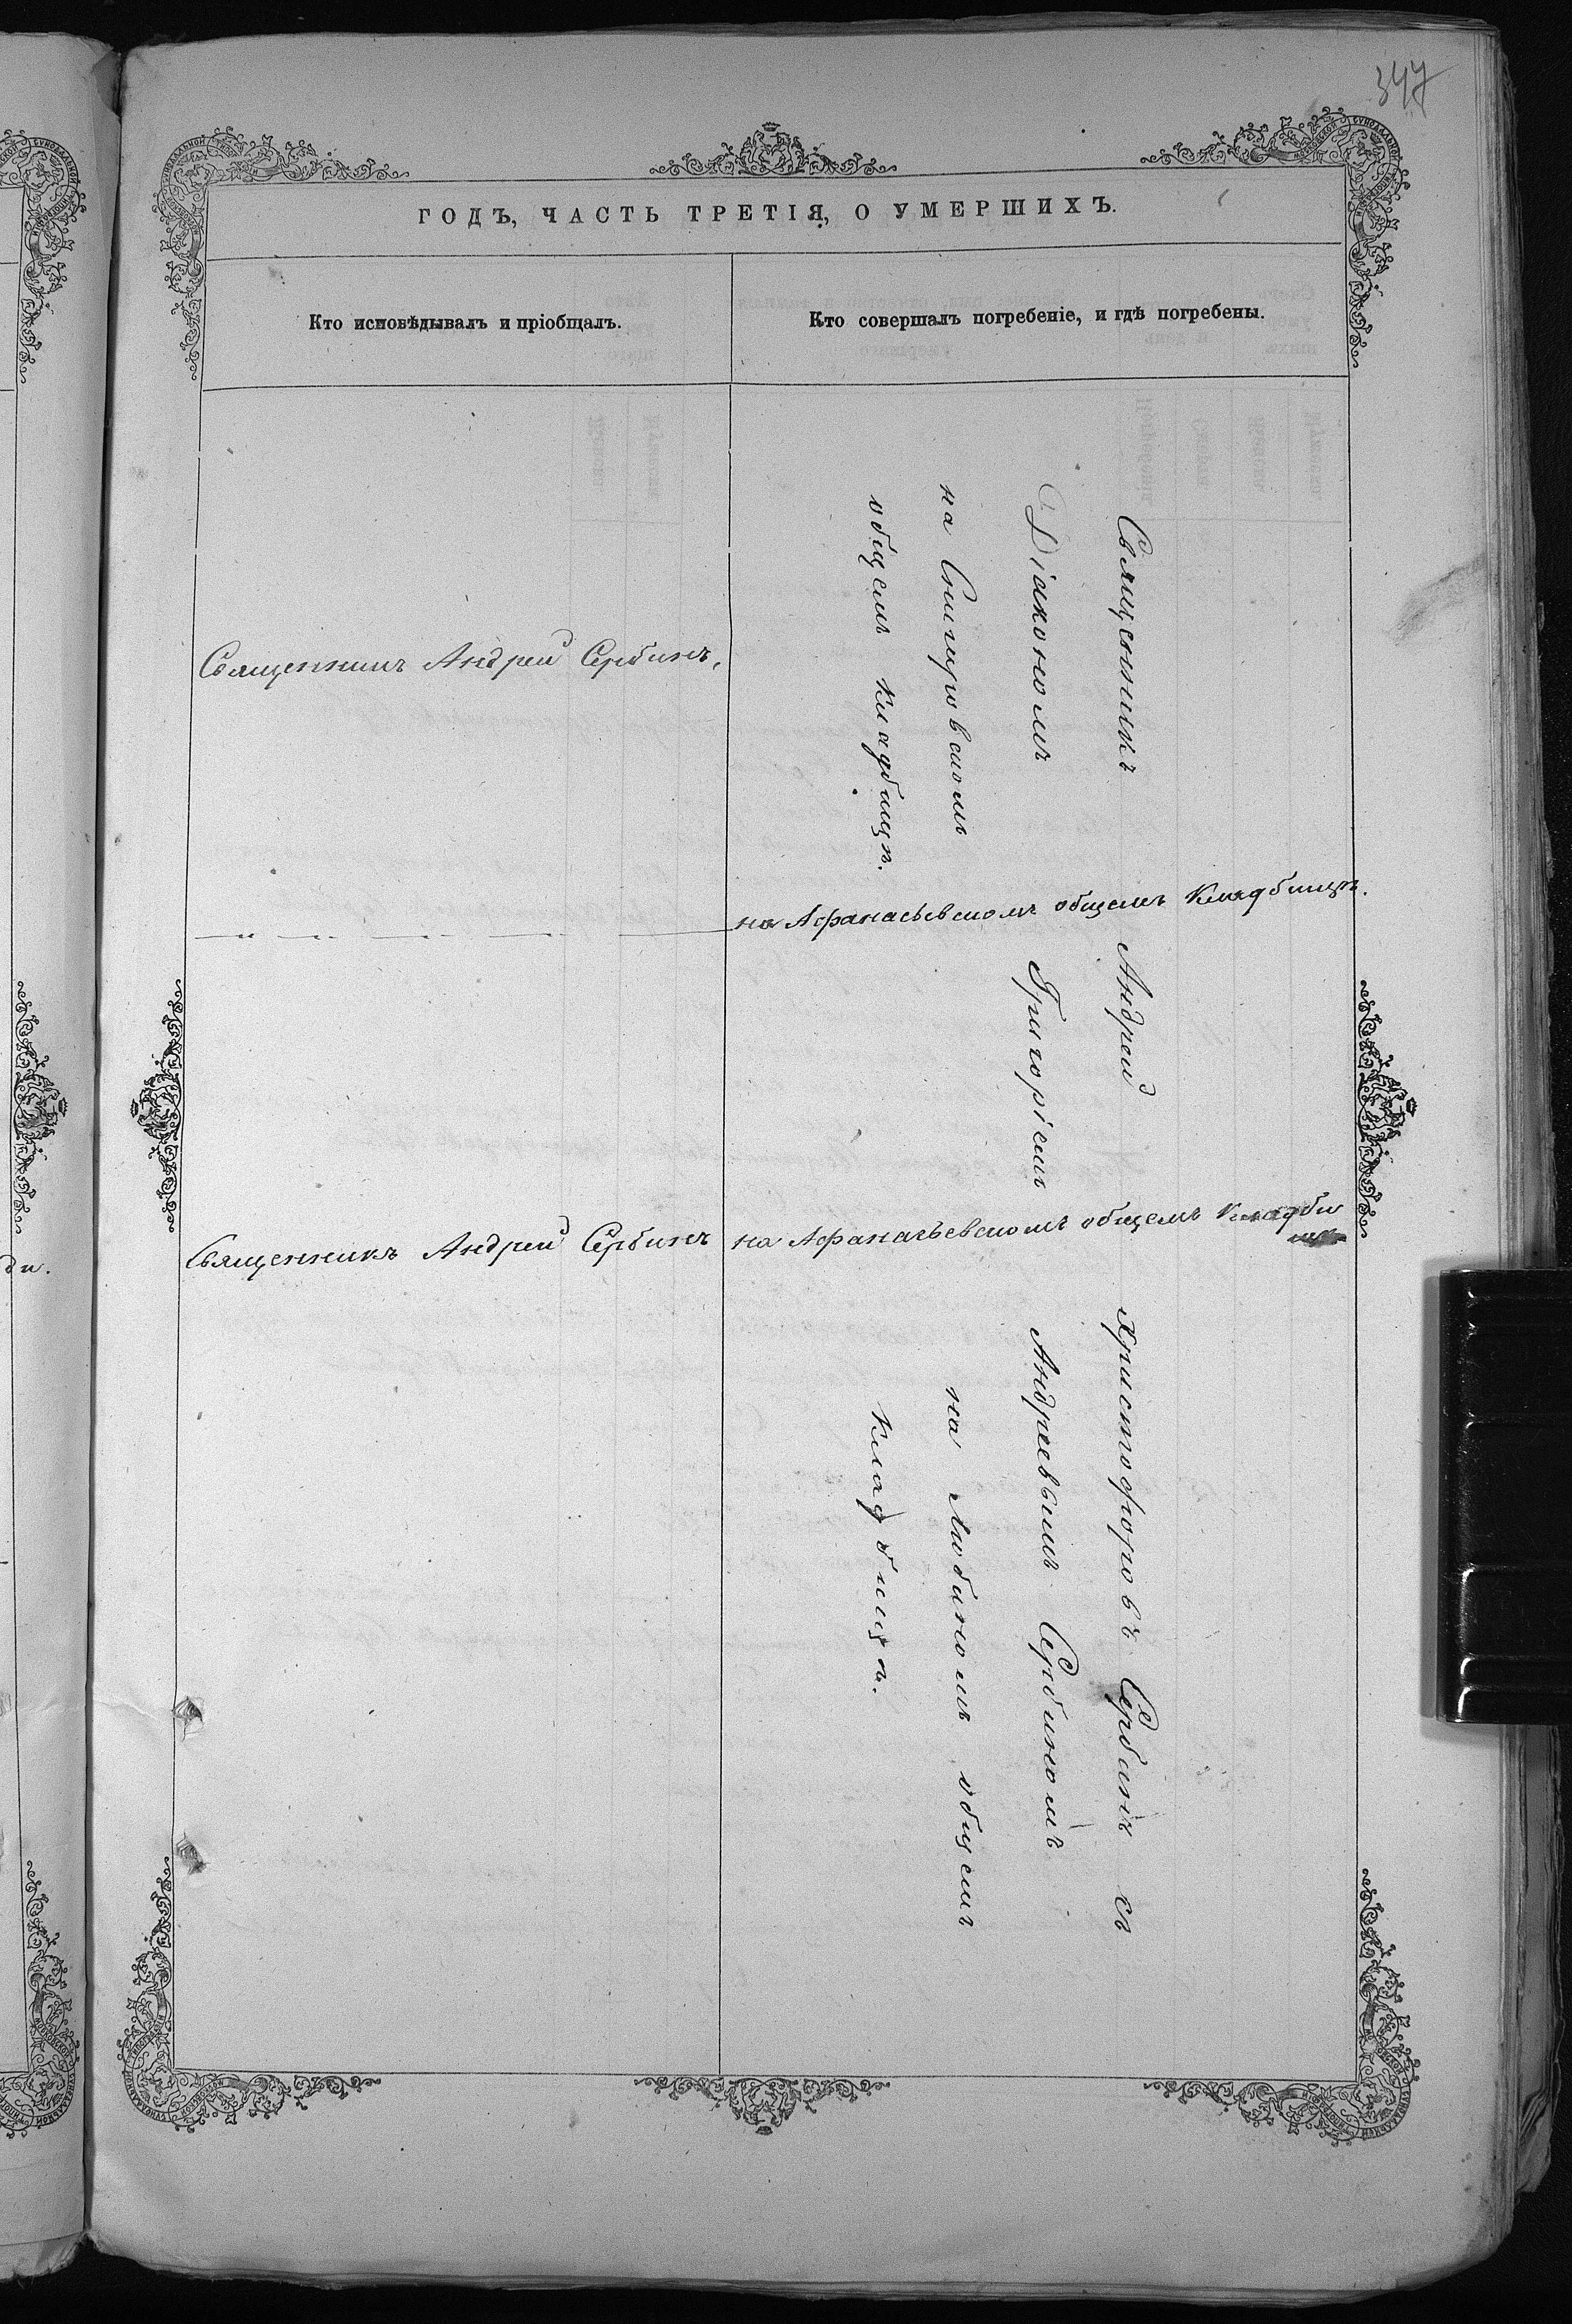 347
ГОДЪ, ЧАСТЬ ТРЕТІЯ, О УМЕРШИХЪ.
Кто исповѣдывалъ и пріобщалъ.
Кто совершалъ погребеніе, и гдѣ погребены.
Священникъ Андрей Сербинъ,
на Афанасьевскомъ общемъ Кладбищѣ.
Священникъ Андрей Сербинъ
на Афанасьевскомъ общемъ Кладби
Священникъ Андрей Христофоровъ Сербинъ съ
Діакономъ Григоріемъ Андреевымъ Сербиномъ
на Снигуровскомъ на Любиномъ общемъ
общемъ кладбищѣ. кладбищѣ.